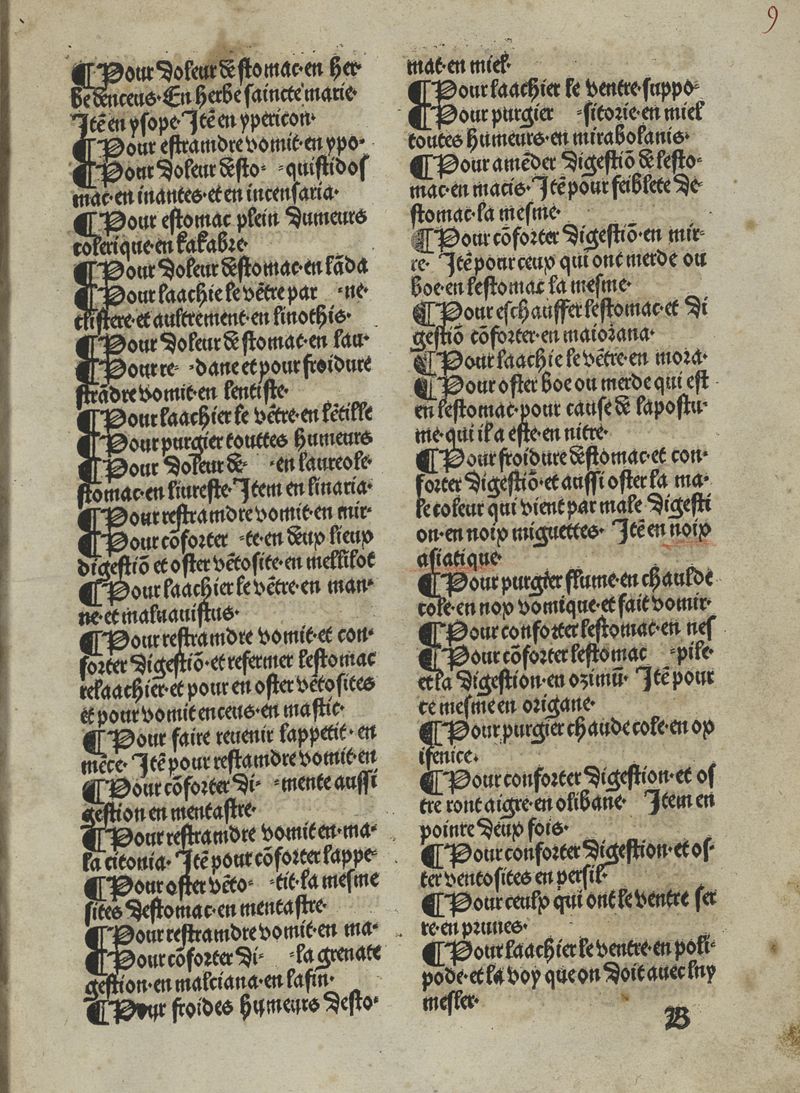 9
¶ Pour doleur destomac·en her-
be denceus·En herbe saincte marie·
Itē en ysope·Itē en ypericon·
¶ Pour estramdre vomit·en ypo-
¶ Pour doleur desto- -quistidos
mac·en inantes·et en incensaria·
¶ Pour estomac plein dumeurs
colerique·en kakabre·
¶ Pour doleur destomac·en lāda
¶ Pour laachie le vētre par -ne·
clistere·et aultrement·en linochis·
¶ Pour doleur destomat·en lau-
¶ Pour re- -dane et pour froidure
strādre vomit·en lentiste·
¶ Pour laachier le vētre·en lētille
¶ Pour purgier touttes humeurs
¶ Pour doleur de- -en laureole·
stomac·en liureste·Item en linaria·
¶ Pour restramdre vomit·en mir-
¶ Pour cōforter -te·en deup lieup
digestiō et oster vētosite·en mellilot
¶ Pour laachier le vētre·en man-
ne·et maluauistus·
¶ Pour restramdre vomit·et con-
forter digestiō·et refermer lestomac
relaachier·et pour en oster vētosites
et pour vomit enceus·en mastic·
¶ Pour faire reuenir lappetit·en
mēce·Itē pour restamdre vomit·en
¶ Pour cōforter di- -mente aussi
gestion en mentastre·
¶ Pour restramdre vomit en·ma-
la citonia·Itē pour cōforter lappe-
¶ Pour oster vēto- -tit·la mesme
sites destomac·en mentastre·
¶ Pour restramdre vomit·en ma-
¶ Pour cōforter di- -la grenate
gestion·en malciana·en lafin·
¶ Pour froides humeurs desto-
mac·en miel·
¶ Pour laachier le ventre·suppo-
¶ Pour purgier -sitorie·en miel
toutes humeurs·en mirabolanis·
¶ Pour amēder digestiō de lesto-
mac·en macis·Itē pour feiblete de-
stomac·la mesme·
¶ Pour cōforter digestiō·en mir-
re· Itē pour ceup qui ont merde ou
boe·en lestomac la mesme·
¶ Pour eschauffer lestomac·et di
gestiō cōforter·en maiorana·
¶ Pour laachie le vētre·en mora·
¶ Pour oster boe ou merde qui est
en lestomac·pour cause de lapostu-
me·qui il a este·en nitre·
¶ Pour froidure destomac·et con-
forter digestiō·et aussi oster la ma-
le coleur qui vient par male digesti
on·en noip miguettes· Itē en noip
asiatique·
¶ Pour purgier flume·en chaulde
cole·en nop vomique·et fait vomir·
¶ Pour conforter lestomac·en nes
¶ Pour cōforter lestomac -pile·
et la digestion·en ozimū· Itē pour
ce mesme en origane·
¶ Pour purgier chaude cole·en op
ifenice·
¶ Pour conforter digestion·et os
tre ront aigre·en olibane· Item en
pointe deup fois·
¶ Pour conforter digestion·et os-
ter ventosites en persil·
¶ Pour ceulp qui ont le ventre ser
re·en prunes·
¶ Pour laachier le ventre·en poli-
pode·et la voy que on doit auec luy
mesler·
B